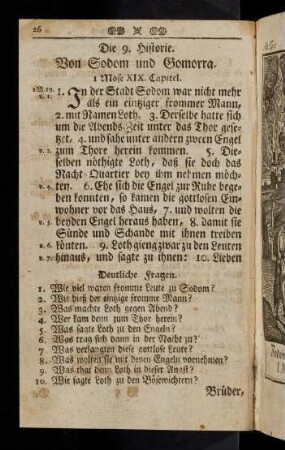 26
Die 9. Historie.
Von Sodom und Gomorra.
1 Mose XIX. Capitel.
1 M. 19. v. 1. 1. In der Stadt Sodom war nicht mehr
als ein eintziger frommer Mann,
2. mit Namen Loth. 3. Derselbe hatte sich
um die Abends-Zeit unter das Thor gese-
tzet. 4. und sahe unter andern zween Engel
v. 2. zum Thore herein kommen. 5. Die-
selben nöthigte Loth, daß sie doch das
Nacht-Quartier bey ihm nehmen möch-
v. 4. ten. 6. Ehe sich die Engel zur Ruhe bege-
ben konnten, so kamen die gottlosen Ein-
wohner vor das Haus, 7. und wolten die
v. 5. beyden Engel heraus haben, 8. damit sie
Sünde und Schande mit ihnen treiben
v. 6. könten. 9. Loth gieng zwar zu den Leuten
v. 7. hinaus, und sagte zu ihnen: 10. Lieben
Deutliche Fragen.
1. Wie viel waren fromme Leute zu Sodom?
2. Wie hieß der einzige fromme Mann?
3. Was machte Loth gegen Abend?
4. Wer kam denn zum Thor herein?
5. Was sagte Loth zu den Engeln?
6. Was trug sich dann in der Nacht zu?
7. Was verlangten diese gottlose Leute?
8. Was wolten sie mit denen Engeln vornehmen?
9. Was that denn Loth in dieser Angst?
10. Wie sagte Loth zu den Bösewichtern?
Brüder,